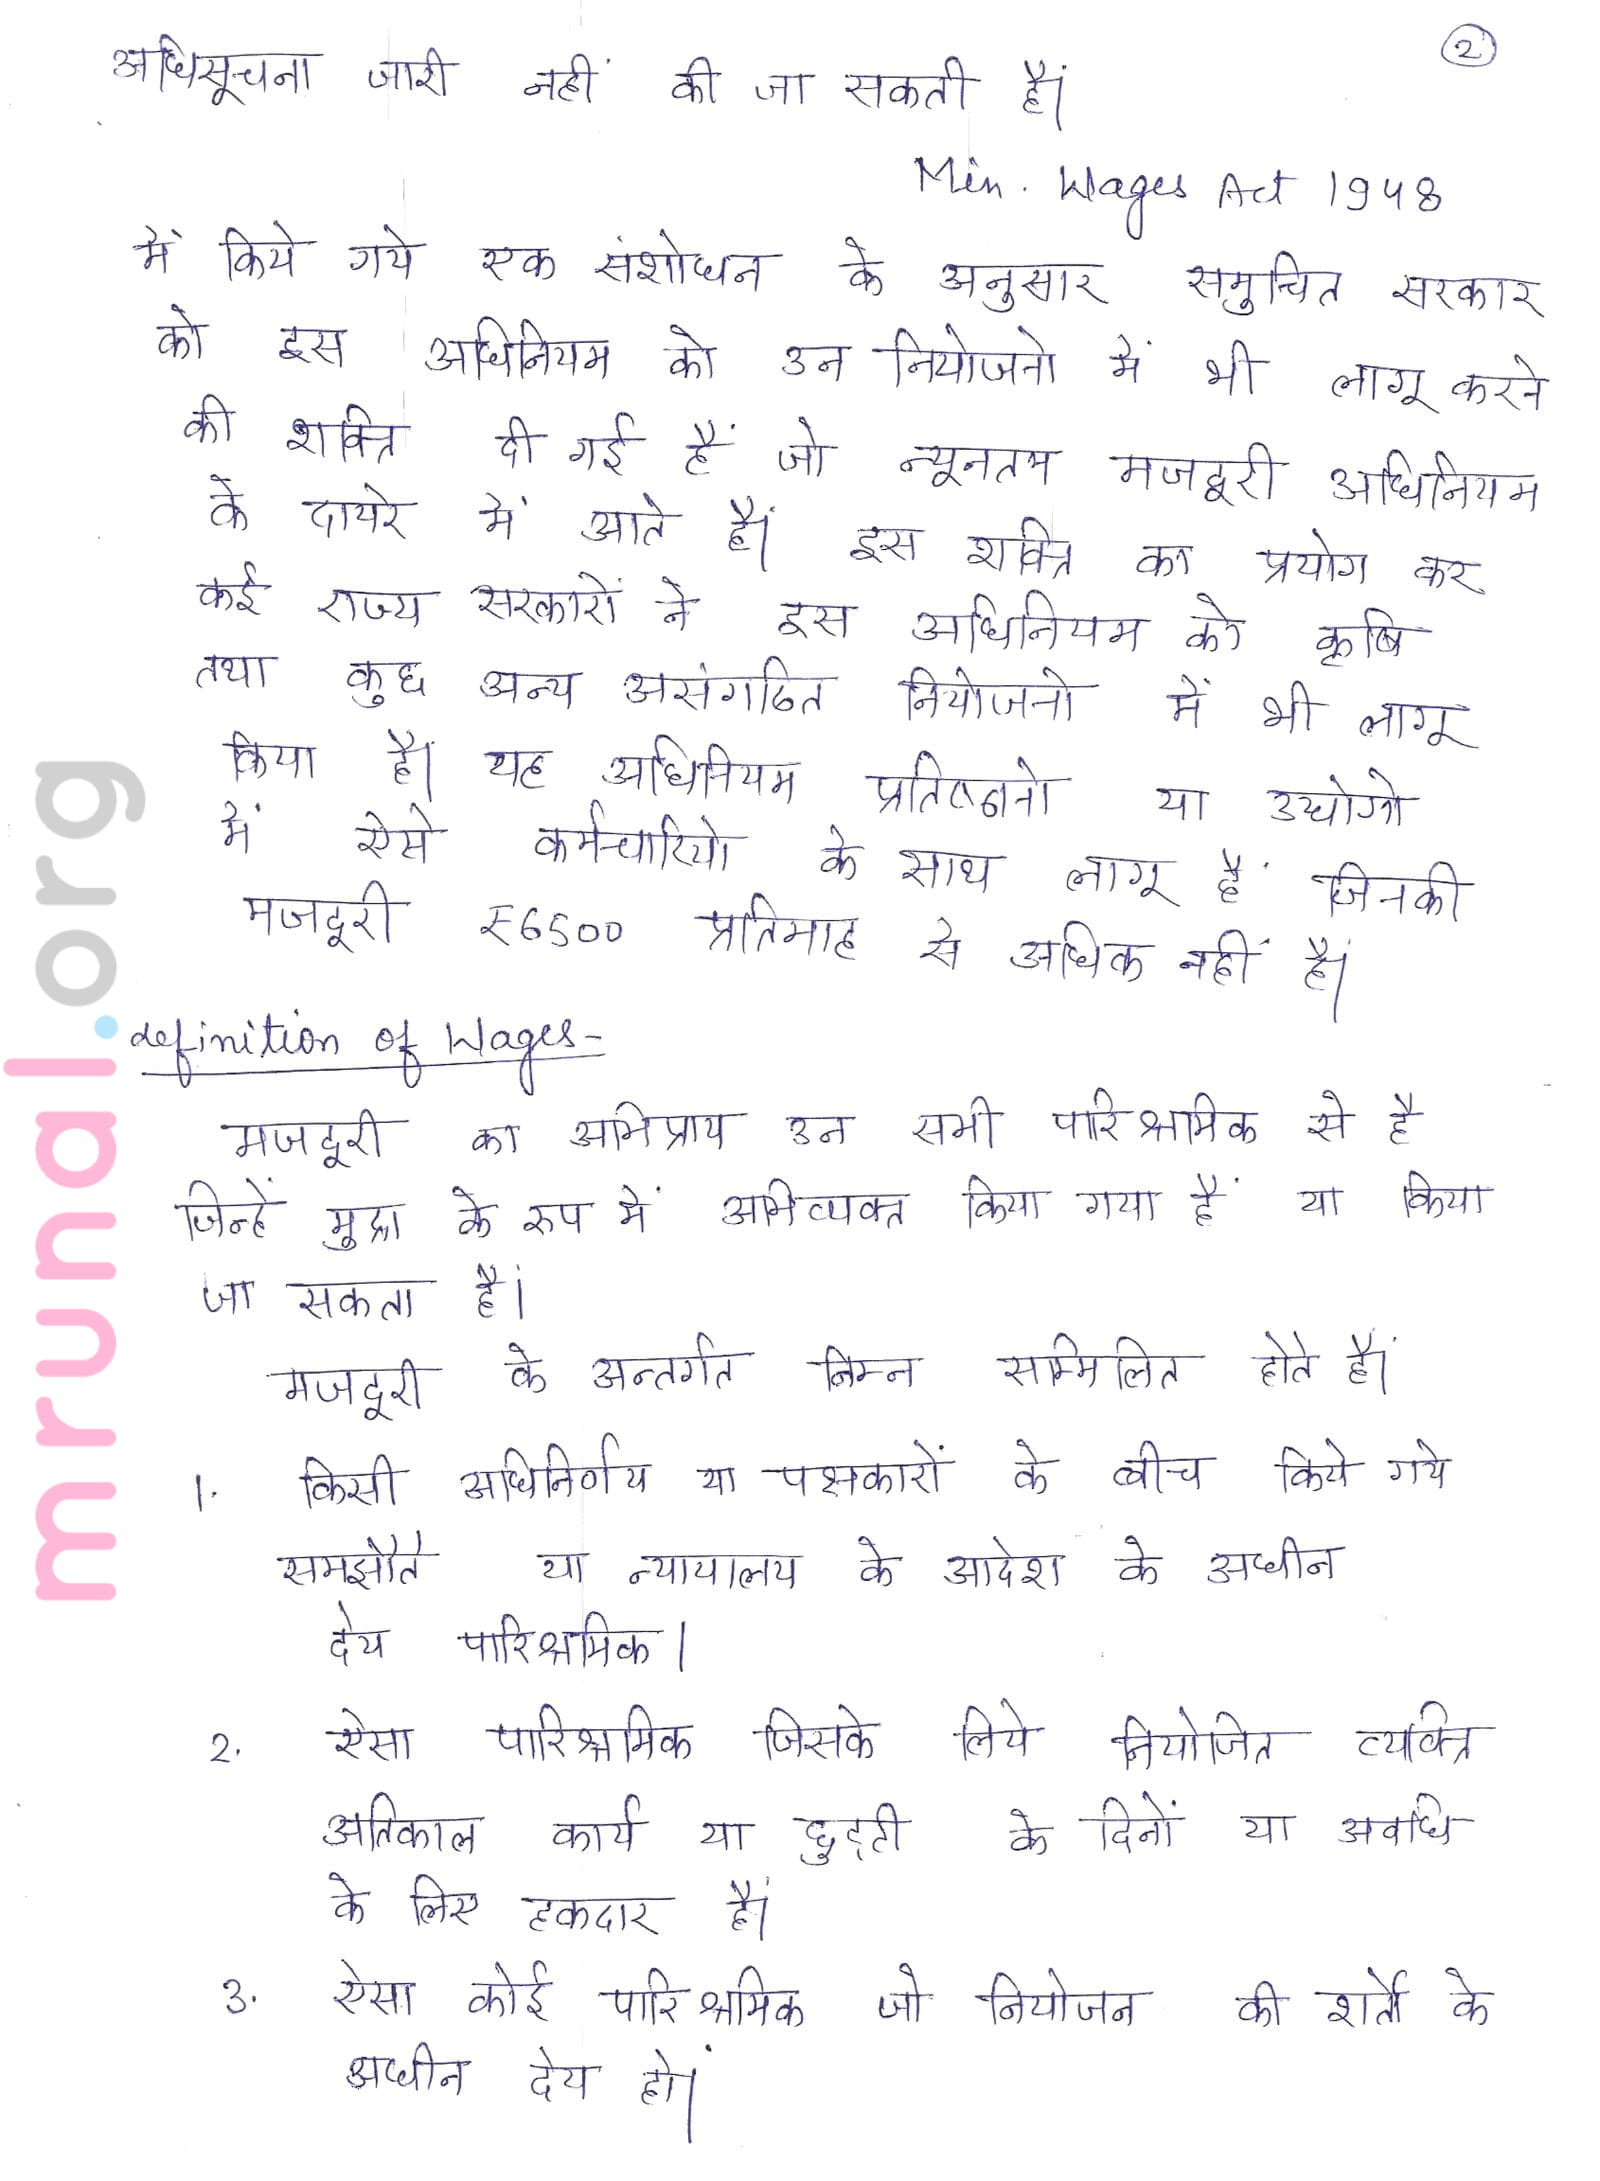 ②
अधिसूचना जारी नहीं की जा सकती हैं।
Min. Wages Act 1948
में किये गये एक संशोधन के अनुसार समुचित सरकार
को इस अधिनियम को उन नियोजनो में भी लागू करने
की शक्ति दी गई हैं जो न्यूनतम मजदूरी अधिनियम
के दायरे में आते हैं। इस शक्ति का प्रयोग कर
कई राज्य सरकारों ने इस अधिनियम को कृषि
तथा कुछ अन्य असंगठित नियोजनो में भी लागू
किया हैं। यह अधिनियम प्रतिष्ठानो या उद्योगो
में ऐसे कर्मचारियो के साथ लागू हैं जिनकी
मजदूरी ₹6500 प्रतिमाह से अधिक नहीं हैं।
definition of Wages-
मजदूरी का अभिप्राय उन सभी पारिश्रमिक से है
जिन्हें मुद्रा के रुप में अभिव्यक्त किया गया हैं या किया
जा सकता हैं।
मजदूरी के अन्तर्गत निम्न सम्मिलित होते हैं।
1. किसी अधिनिर्णय या पक्षकारों के बीच किये गये
समझौते या न्यायालय के आदेश के अधीन
देय पारिश्रमिक।
2. ऐसा पारिश्रमिक जिसके लिये नियोजित व्यक्ति
अतिकाल कार्य या छुट्टी के दिनों या अवधि
के लिए हकदार हैं।
3. ऐसा कोई पारिश्रमिक जो नियोजन की शर्तो के
अधीन देय हों।
mrunal.org